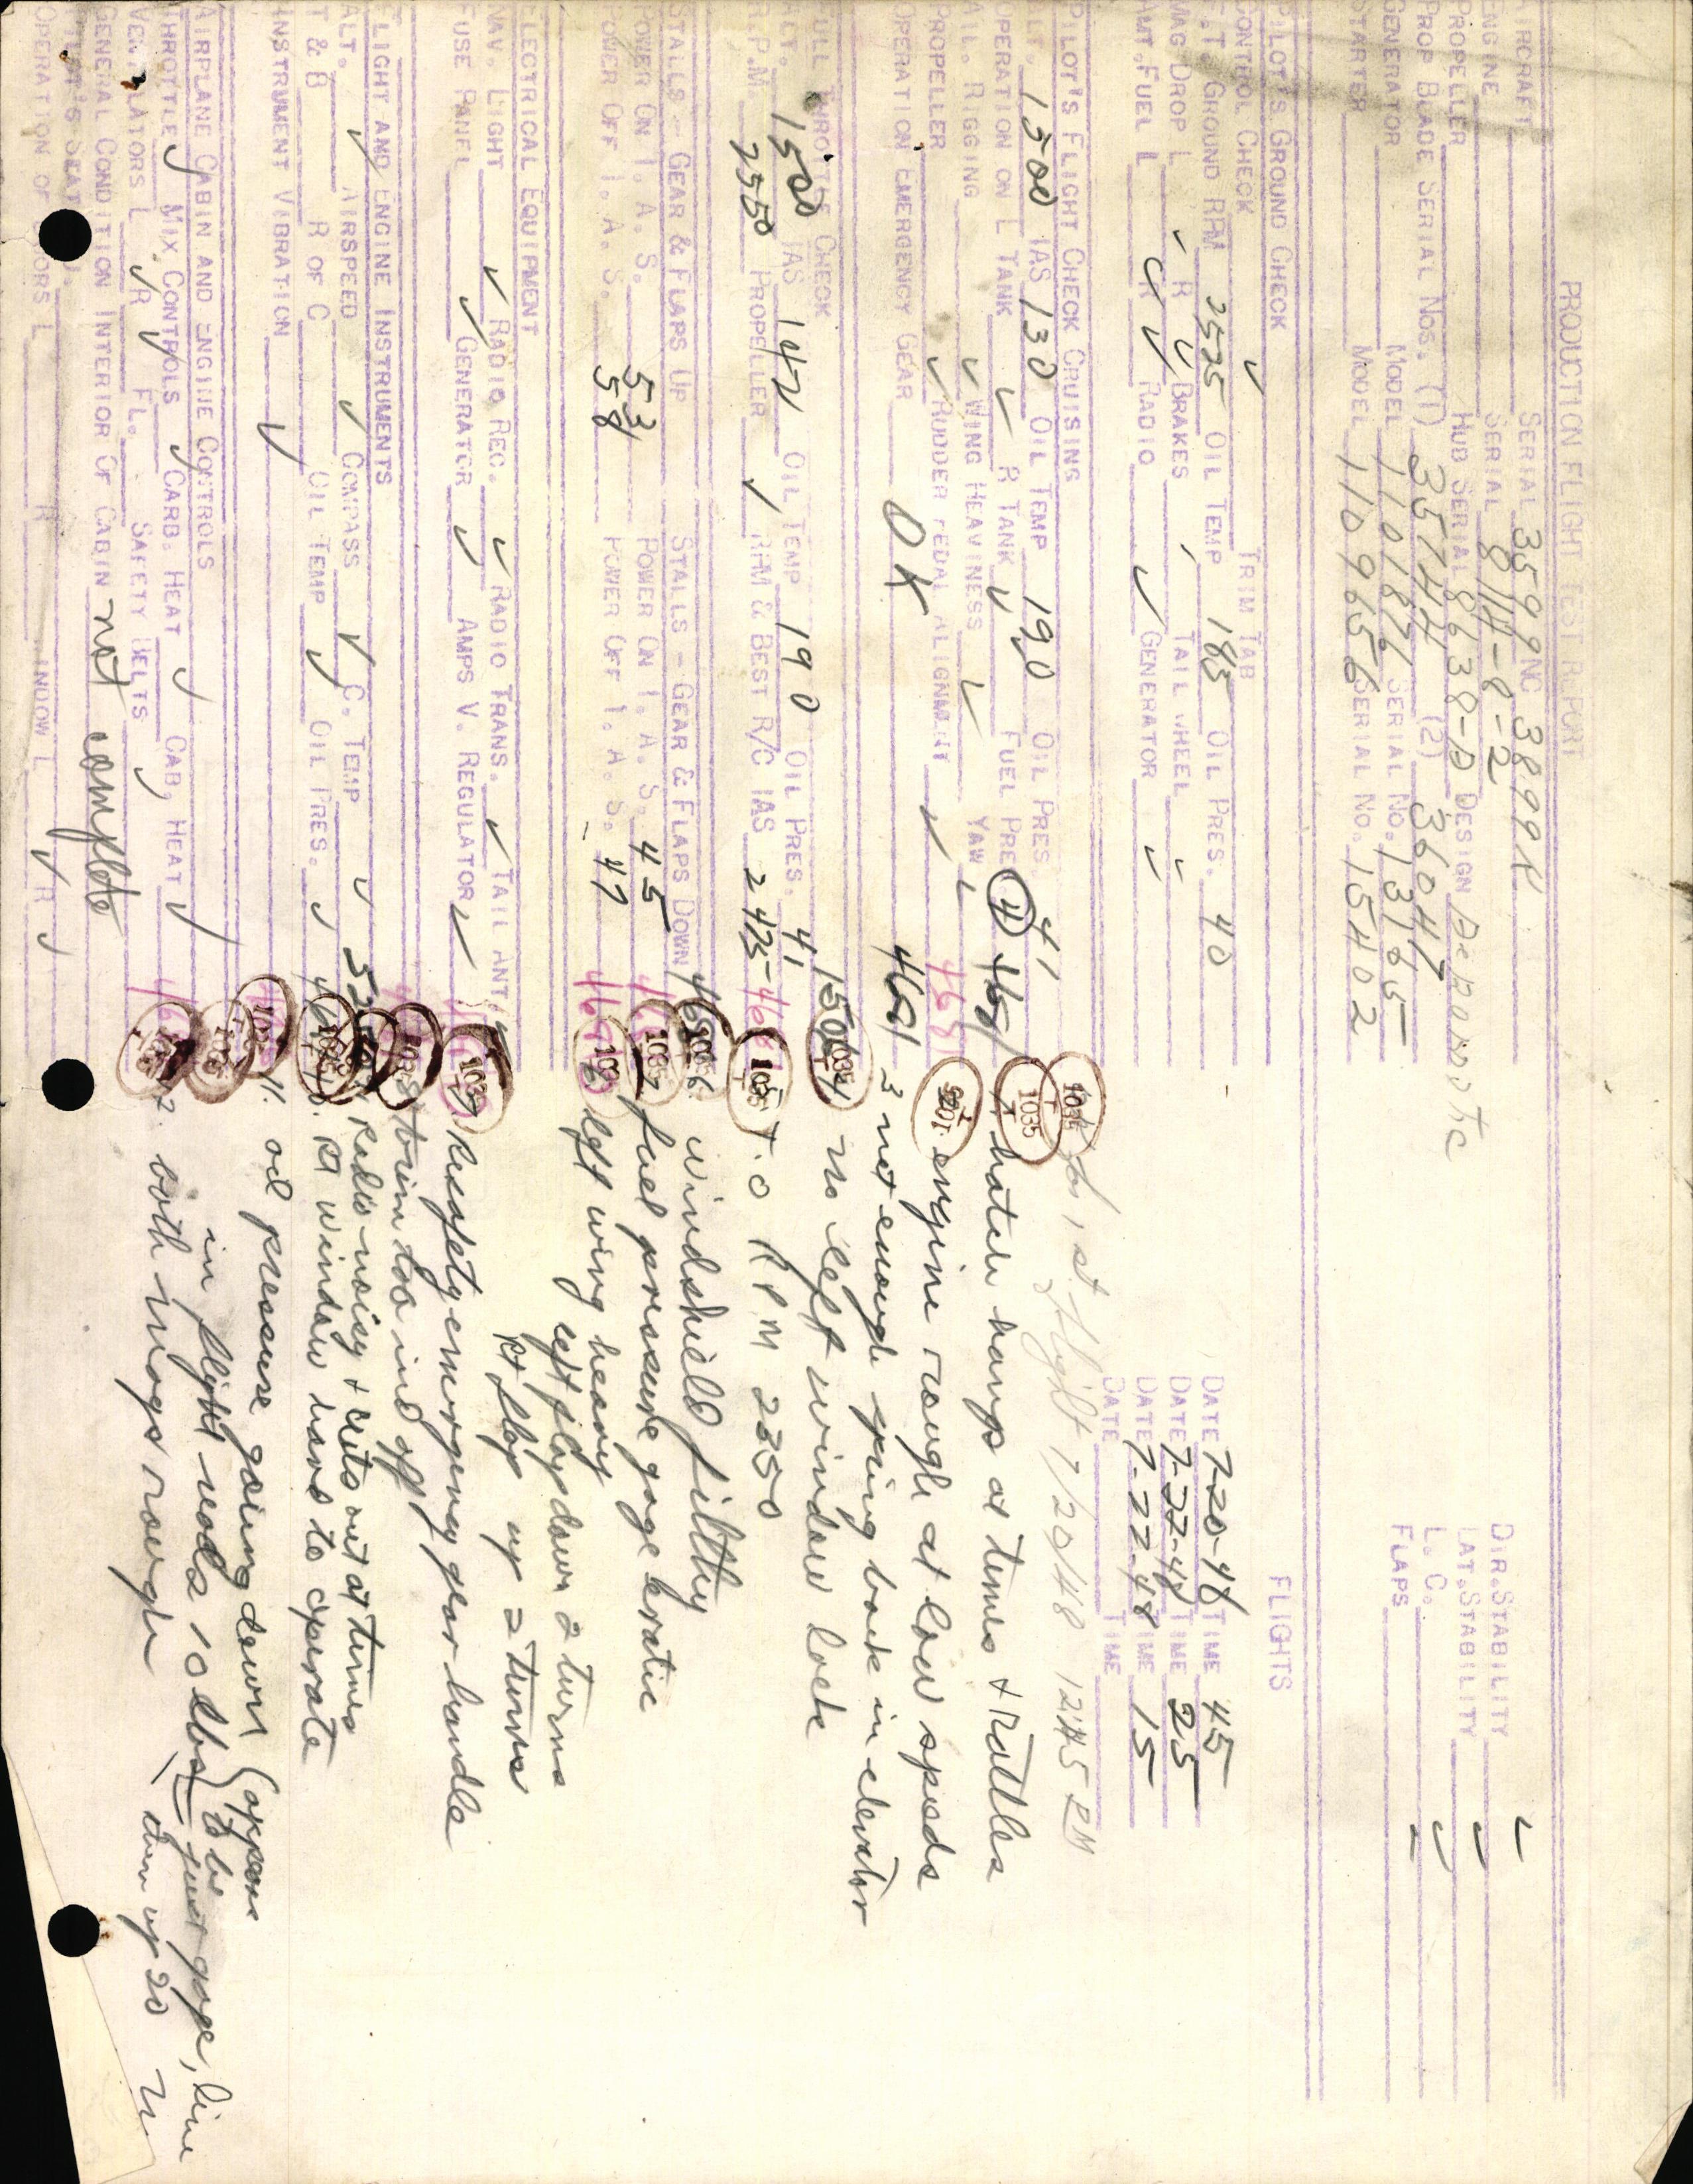 PRODUCTION FLIGHT TEST REPORT
AIRCRAFT SERIAL 3599 NC 3899N DIR. STABILITY ✓
ENGINE SERIAL LAT. STABILITY ✓
PROPELLER HUB SERIAL 8638-D DESIGN LAT. STABILITY
PROP BLADE SERIAL NOS. (1) 35744 (2) 36047 L. C. ✓
GENERATOR MODEL 1101876 SERIAL NO. 13165 FLAPS
STARTER MODEL 1109656 SERIAL NO. 15402
PILOT'S GROUND CHECK FLIGHTS
CONTROL CHECK ✓ TRIM TAB
F.T. GROUND RPM 2525 OIL TEMP 185 OIL PRES. 40 DATE 7-20-48 TIME 45
MAG DROP L ✓ R ✓ BRAKES TAIL WHEEL ✓ DATE 7-22-48 TIME 25
AMT. FUEL L ✓ R ✓ RADIO ✓ GENERATOR ✓ DATE 7-22-48 TIME 15
DATE TIME
PILOT'S FLIGHT CHECK CRUISING 1st flight 7/20/48 1245 PM
ALT. 1500 IAS 130 OIL TEMP 190 OIL PRES 41
OPERATION ON L TANK ✓ R TANK ✓ FUEL PRES 4 hatch hangs at times & rattles
AIL. RIGGING ✓ WING HEAVINESS ✓ YAW ✓
PROPELLER ✓ RUDDER PEDAL ALIGNMENT ✓ engine rough at low speeds
OPERATION EMERGENCY GEAR OK 3 not enough spring back in elevator
FULL THROTTLE CHECK 4 no left window lock
ALT. 1500 IAS 142 OIL TEMP 190 OIL PRES. 41
R.P.M. 2550 PROPELLER ✓ RPM & BEST R/C IAS 2475 T.O RPM 2250
STALLS - GEAR & FLAPS UP STALLS - GEAR & FLAPS DOWN 6. windshield filthy
POWER ON I. A. S. 53 POWER ON I. A. S. 45 7 fuel pressure gage eratic
POWER OFF I. A. S. 58 POWER OFF I. A. S. 47 left wing heavy
left flap down 2 turns
Rt flap up 2 turns
ELECTRICAL EQUIPMENT
NAV. LIGHT ✓ RADIO REC. ✓ RADIO TRANS. ✓ TAIL ANT.
FUSE PANEL ✓ GENERATOR ✓ AMPS V. REGULATOR ✓ Resafety emergency gear handle
FLIGHT AND ENGINE INSTRUMENTS trim too
ALT. ✓ AIRSPEED ✓ COMPASS ✓ C. TEMP ✓ Radio noisy & cuts out at times
T & B R OF C OIL TEMP ✓ OIL PRES. ✓ Rt window hard to operate
INSTRUMENT VIBRATION ✓ 11. oil pressure going down
in flight reads 10 lbs
AIRPLANE CABIN AND ENGINE CONTROLS
THROTTLE ✓ MIX. CONTROLS ✓ CARB. HEAT ✓ CAB. HEAT ✓ 12. both mags rough
VENTILATORS L ✓ R ✓ FL. SAFETY BELTS ✓
GENERAL CONDITION INTERIOR OF CABIN not complete
PILOT'S SEAT
OPERATION OF DOORS L R WINDOW L ✓ R ✓